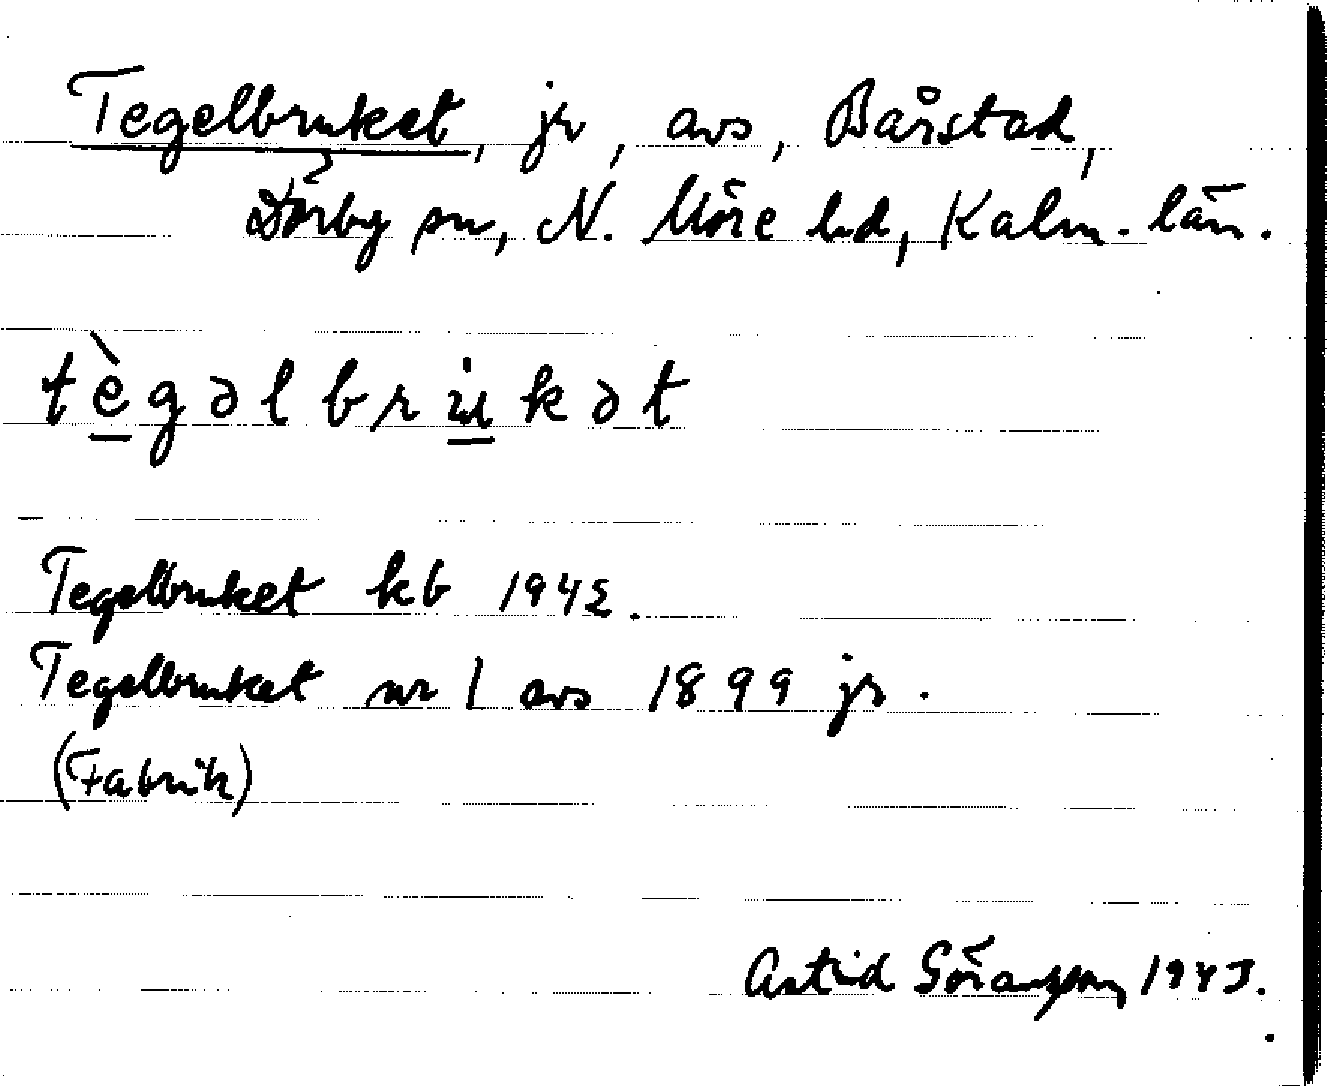 Tegelbruket, jr, avs, Bårstad,
Dörby sn, N. Möre hd, Kalm. län.
tègəlbrùkət
Tegelbruket kb 1942.
Tegelbruket nr 1 avs 1899 jr.
(Fabrik)
Astrid Göransson, 1943.